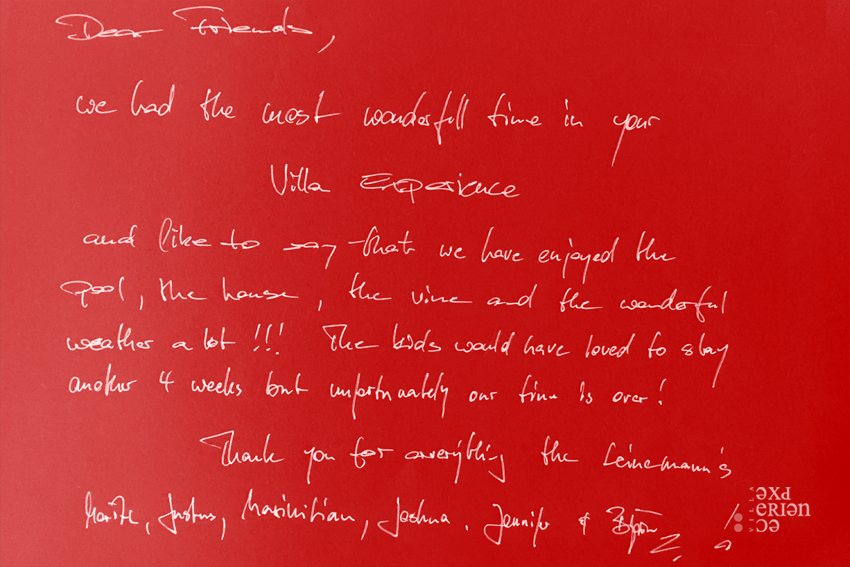 Dear Friends,
we had the most wonderfull time in your
Villa Experience
and like to say that we have enjoyed the
pool, the house, the vine and the wonderful
weather a lot !!! The kids would have loved to stay
another 4 weeks but unfortunately our time is over!
Thank you for everything the Leinemann's
Moritz, Justus, Maximilian, Joshua, Jennifer & Björn
VILLA
EXP
ERIEN
CE